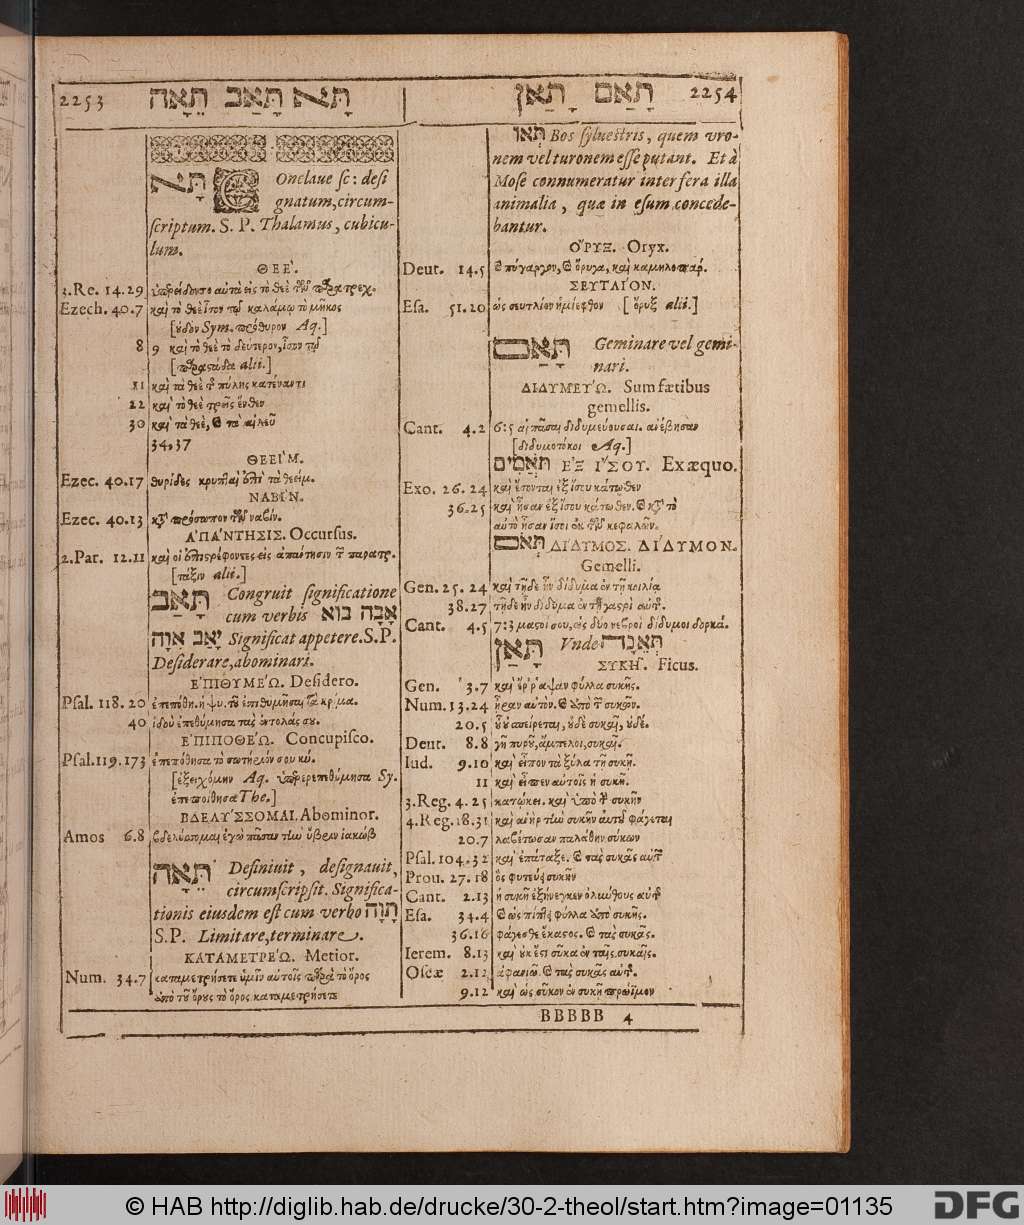 2253 תָּא תָּאַב תֵּאָה
תָּא COnclaue sc: desi
gnatum, circum-
scriptum. S. P. Thalamus, cubicu-
lum.
ΘΕΕ'.
3.Re. 14.29
Ezech. 40.7 καὶ τὸ θεὲ ἴσον τῷ καλάμῳ τὸ μῆκος
Sym. πρόθυρον Aq.]
8 9 καὶ τὸ θεὲ τὸ δεύτερον, ἴσον τῷ
alii.]
21 καὶ τὰ θεὲ τ̃ πύλης κατέναντι
22 καὶ τὸ θεὲ τρεῖς ἔνθεν
30 καὶ τὰ θεὲ, καὶ τὰ αἰλεῦ
34,37
ΘΕΕΙ'Μ.
Ezec. 40.17 θυρίδες κρυπταὶ ἐπὶ τὰ θεείμ.
ΝΑΒΙ'Ν.
Ezec. 40.13 κατὰ πρόσωπον τῶν ναβίν.
Α'ΠΑ'ΝΤΗΣΙΣ. Occursus.
2.Par. 12.11 καὶ οἱ ἐπιστρέφοντες εἰς ἀπάντησιν τ̃ παρατρ.
[τάξιν alii.]
תָּאַב Congruit significatione
cum verbis אָבָה בוֹא
יָאַב אִוָּה Significat appetere. S.P.
Desiderare, abominari.
Ε'ΠΙΘΥΜΕ'Ω. Desidero.
Psal. 118. 20
40 ἰδοὺ ἐπεθύμησα τὰς ἐντολάς σου.
Ε'ΠΙΠΟΘΕ'Ω. Concupisco.
Psal.119.173 ἐπεπόθησα τὸ σωτήριόν σου κύ.
Aq. ὑπερεπεθύμησα Sy.
ἐπεποίθησα The.]
ΒΔΕΛΥ'ΣΣΟΜΑΙ. Abominor.
Amos 6.8 βδελύσσομαι ἐγὼ πᾶσαν τὴν ὕβριν ἰακώβ
תֵּאָה Definiuit, designauit,
circumscripsit. Significa-
tionis eiusdem est cum verbo תָּוָה
S.P. Limitare, terminare.
ΚΑΤΑΜΕΤΡΕ'Ω. Metior.
Num. 34.7 καταμετρήσετε ὑμῖν αὐτοῖς παρὰ τὸ ὄρος
ἀπὸ τοῦ ὄρους τὸ ὄρος καταμετρήσετε
תָּאַם תָּאַן 2254
תְּאוֹ Bos syluestris, quem vro-
nem vel turonem esse putant. Et à
Mose connumeratur inter fera illa
animalia, quæ in esum concede-
bantur.
Ο'´ΡΥΞ. Oryx.
Deut. 14.5 καὶ πύγαργον, καὶ ὄρυγα, καὶ καμηλοπάρ.
ΣΕΥΤΛΙ'ΟΝ.
Esa. 51.20 ὡς σευτλίον ἡμίεφθον [ὄρυξ alii.]
תָּאַם Geminare vel gemi-
nari.
ΔΙΔΥΜΕΥ'Ω. Sum fœtibus
gemellis.
Cant. 4.2 6:5 αἱ πᾶσαι διδυμεύουσαι. ἀνέβησαν
[διδυμοτόκοι Aq.]
תֹּאֲמִים Ε'Ξ Ι'´ΣΟΥ. Exæquo.
Exo. 26. 24 καὶ ἔσονται ἐξ ἴσου κάτωθεν
36.25 καὶ ἦσαν ἐξ ἴσου κάτωθεν. καὶ κατὰ τὸ
αὐτὸ ἦσαν ἴσοι ἐκ τῶν κεφαλῶν.
תְּאֹם ΔΙ'ΔΥΜΟΣ. ΔΙ'ΔΥΜΟΝ.
Gemelli.
Gen. 25. 24 καὶ τῇδε ἦν δίδυμα ἐν τῇ κοιλίᾳ
38.27 τῇδε ἦν δίδυμα ἐν τῇ γαστρὶ αὐτ̃.
Cant. 4.5 7:3 μαστοί σου, ὡς δύο νεβροὶ δίδυμοι δορκά.
תָּאַן Vnde תְּאֵנָה
ΣΥΚΗ˜. Ficus.
Gen. 3.7 καὶ ἔρραψαν φύλλα συκῆς.
Num. 13.24
20.5
Deut. 8.8 γῆ πυροῦ, ἄμπελοι, συκαῖ.
Iud. 9.10 καὶ εἶπον τὰ ξύλα τῇ συκῇ.
11 καὶ εἶπεν αὐτοῖς ἡ συκῆ.
3.Reg. 4. 25 κατῴκει. καὶ ὑπὸ τ̃ συκῆν
4.Reg.18.31 καὶ ἀνὴρ τὴν συκῆν αὐτοῦ φάγεται
20.7 λαβέτωσαν παλάθην σύκων
Psal. 104.32 καὶ ἐπάταξε. καὶ τὰς συκᾶς αὐτῶν
Prou. 27. 18 ὃς φυτεύει συκῆν
Cant. 2.13 ἡ συκῆ ἐξήνεγκεν ὀλύνθους αὐτ̃
Esa. 34.4 καὶ ὡς πίπτει φύλλα ἀπὸ συκῆς.
36.16 φάγεσθε ἕκαστος. καὶ τὰς συκᾶς.
Ierem. 8.13 καὶ οὐκ ἔστι σῦκα ἐν ταῖς συκαῖς.
Oseæ 2.12 ἀφανιῶ. καὶ τὰς συκᾶς αὐτ̃.
9.12 καὶ ὡς σῦκον ἐν συκῇ πρώϊμον
BBBBB 4
© HAB http://diglib.hab.de/drucke/30-2-theol/start.htm?image=01135
DFG